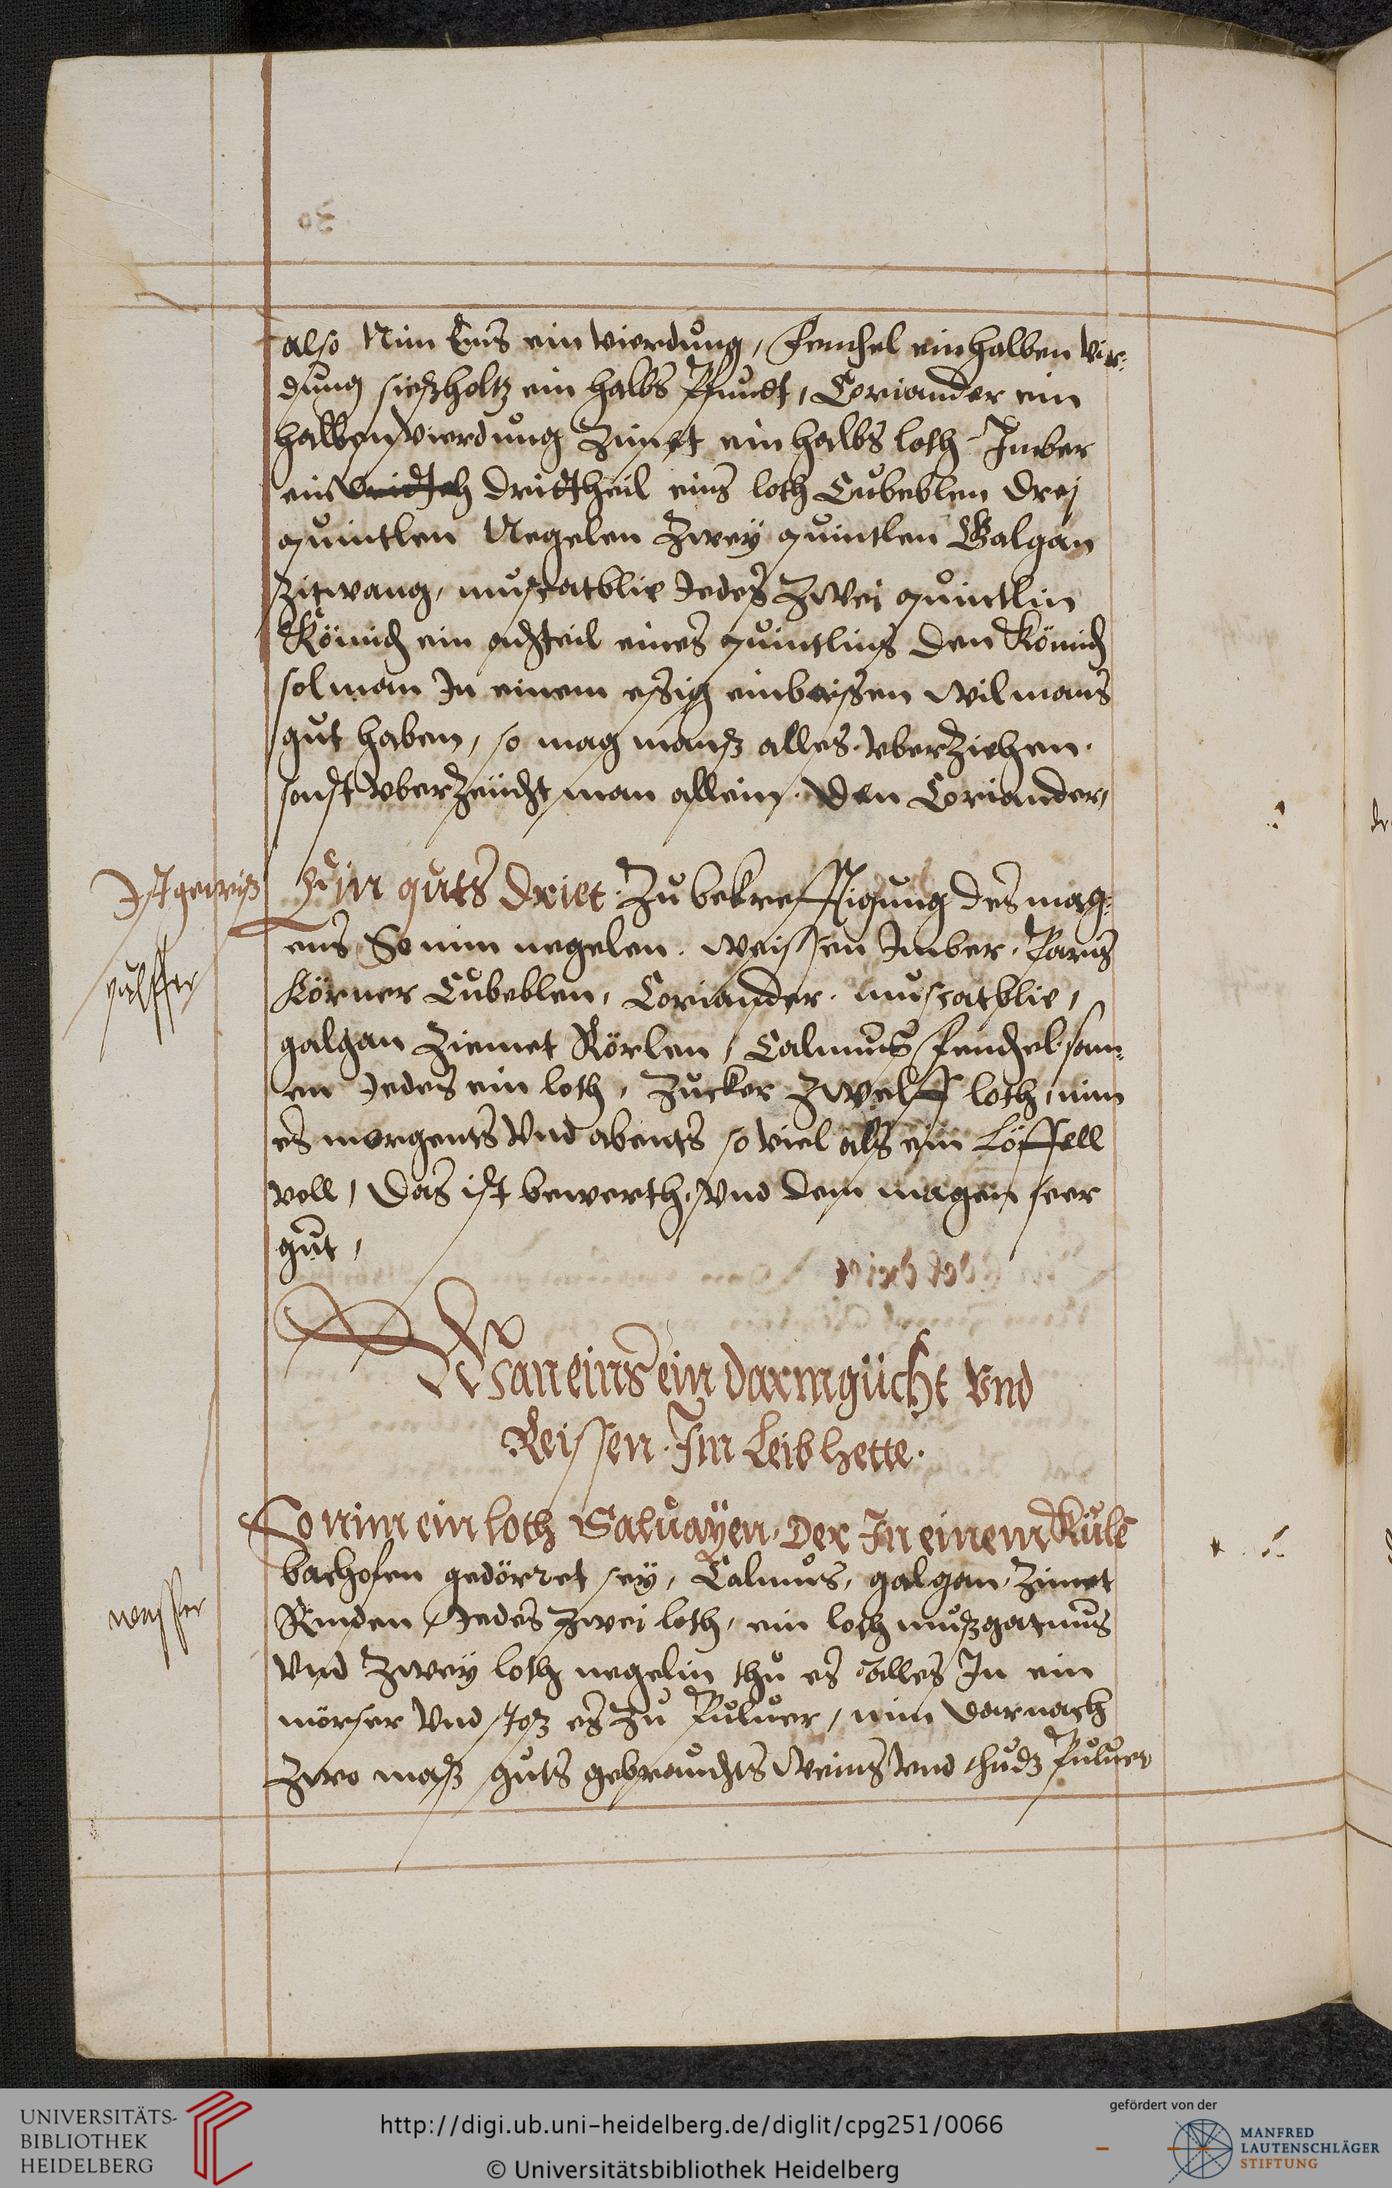 also Nim Enis ein vierdung, Fenchel ein halben vir-
dung siessholtz ein halbs Pfundt, Coriander ein
halben vierdung Zimet ein halbs loth Imber
ein dridttheil eins loth Cubeblen drej
quintlen Negelen Zwey quintlen Galgan
Zitwang, muscatblie Jedes Zwei quintlin
Kömich ein achteil eines quintlins den Kömich
sol man In einem essig einbaissen wil mans
gut haben, so mag manß alles vberziehen.
sonst vberzeücht man allein den Coriander,
Ist gewiß
Ein guts Driet Zu bekrefftigung des mag-
ens So nim negelen. weissen Imber. Paris
pulffer
Körner Cubeblen, Coriander. muscatblie,
galgan Ziemet Rörlen, Calmus fenchel sam-
en Jedes ein loth, Zucker Zwelff loth, nim
es morgents vnd abents so viel als ein Löffell
voll, das ist bewerth, vnd dem magen seer
gut,
Wan eins ein darmgücht vnd
Reissen Im Leib hette.
So nim ein loth Saluayen. Der In einem Küle
bachofen gedörret sey, Calmus, galgan, Zimet
wasser
Rinden Jedes zwei loth, ein loth mußgatnus
vnd Zwey loth negelin thu es alles In ein
mörser vnd stoß es Zu Puluer, nim darnach
Zwo maß guts gebranchts Weins vnd thudz Puluer
UNIVERSITÄTS-
BIBLIOTHEK
HEIDELBERG
http://digi.ub.uni-heidelberg.de/diglit/cpg251/0066
© Universitätsbibliothek Heidelberg
gefördert von der
MANFRED
LAUTENSCHLÄGER
STIFTUNG